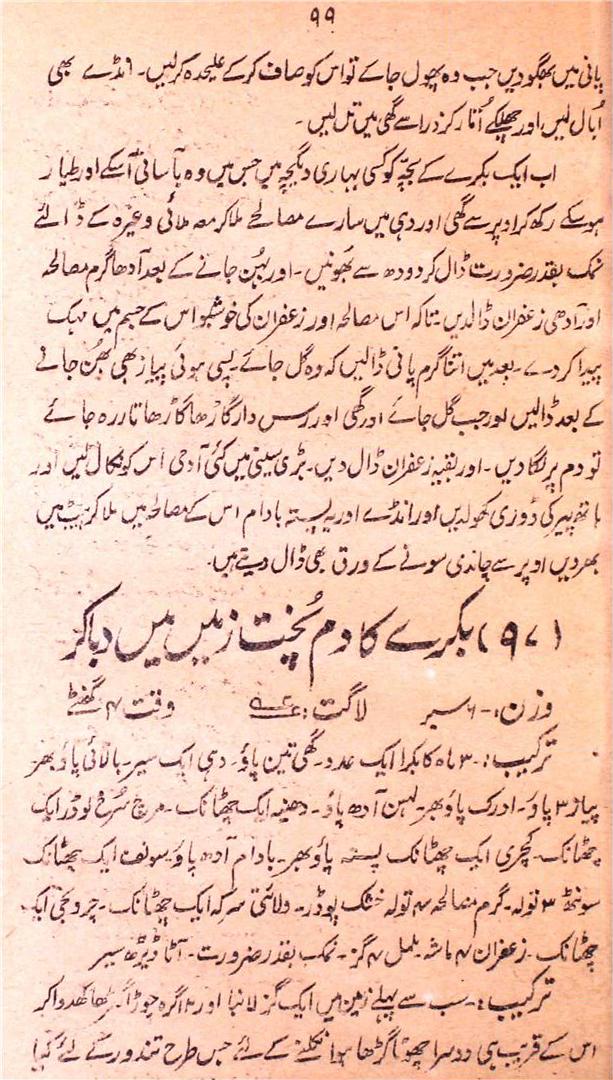 ۹۹
پانی میں بھگودیں جب وہ پھول جاے تواس کو صاف کرکے علیحدہ کرلیں۔ انڈے بھی
اُبال لیں اور چھلکے اُتار کر ذرا سے گھی میں تل لیں۔
اب ایک بکرے کے بچہ کو کسی بھاری دیگچہ میں جس میں وہ بآسانی آسکے اور طیار
ہوسکے رکھ کر اوپر سے گھی اور دہی میں سارے مصالحے ملاکر معہ ملائی وغیرہ کے ڈالئے
نمک بقدر ضرورت ڈال کر دودھ سے بھونیں۔ اور بھُن جانے کے بعد آدھا گرم مصالحہ
اور آدھی زعفران ڈالدیں۔ تاکہ اس مصالحہ اور زعفران کی خوشبو اس کے جسم میں مہک
پیدا کردے۔ بعد میں اتنا گرم پانی ڈالیں کہ وہ گل جائے۔ پسی ہوئی پیاز بھی بھُن جانے
کے بعد ڈالیں اور جب گل جائے اور گھی اور رس دار گاڑھا گاڑھا تار رہ جائے
تو دم پر لگادیں۔ اور بقیہ زعفران ڈال دیں۔ بڑی سینی میں کئی آدمی اس کو نکال لیں اور
ہاتھ پیر کی ڈوری کھولدیں اور انڈے اور یہ پستہ بادام اس کے مصالحہ میں ملاکر پیٹ میں
بھردیں اوپر سے چاندی سونے کے ورق بھی ڈال دیتے ہیں۔
(۹۷) بکرے کا دم پُخت زمیں میں دباکر
وزن:- ۶ سیر لاگت: وقت ۴ گھنٹے
ترکیب:- ۳ ماہ کا بکرا ایک عدد۔ گھی تین پاؤ۔ دہی ایک سیر۔ بالائی پاؤ بھر
پیاز ۳ پاؤ۔ ادرک پاؤ بھر۔ لہسن آدھ پاؤ۔ دھنیہ ایک چھٹانک۔ مرچ سُرخ پوڈر ایک
چھٹانک۔ کچری ایک چھٹانک پستہ پاؤ بھر۔ بادام آدھ پاؤ۔ سونف ایک چھٹانک
سونٹھ ۳ تولہ۔ گرم مصالحہ ۴ تولہ خشک پوڈر۔ ولائتی سرکہ ایک چھٹانک۔ چرونجی ایک
چھٹانک۔ زعفران ۴ ماشہ۔ ململ ۴ گز۔ نمک بقدر ضرورت۔ آٹا ڈیڑھ سیر
ترکیب:- سب سے پہلے زمین میں ایک گز لانبا اور گرہ چوڑا گڑھا کھدواکر
اس کے قریب ہی دوسرا چھوٹا گڑھا ہوا نکلنے کے لئے جس طرح تندور کے لئے کیا